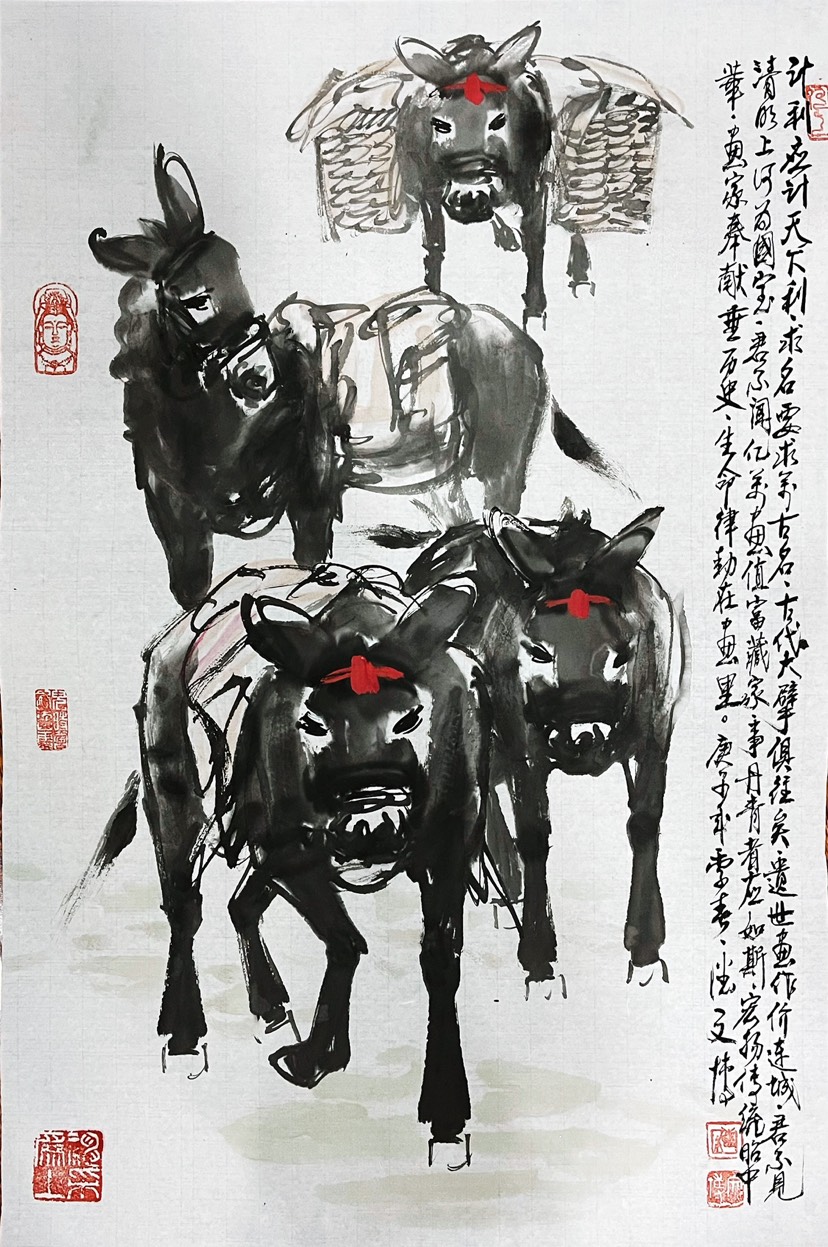 计利应计天下利、求名要求万古名、古代大擘俱往矣、遗世画作价连城、君不见
清明上河为国宝、君不闻亿万画值富藏家、事丹青者应如斯、宏扬传统昭中
华、画家奉献垂历史、生命律动在画里。庚子年 春、 文博